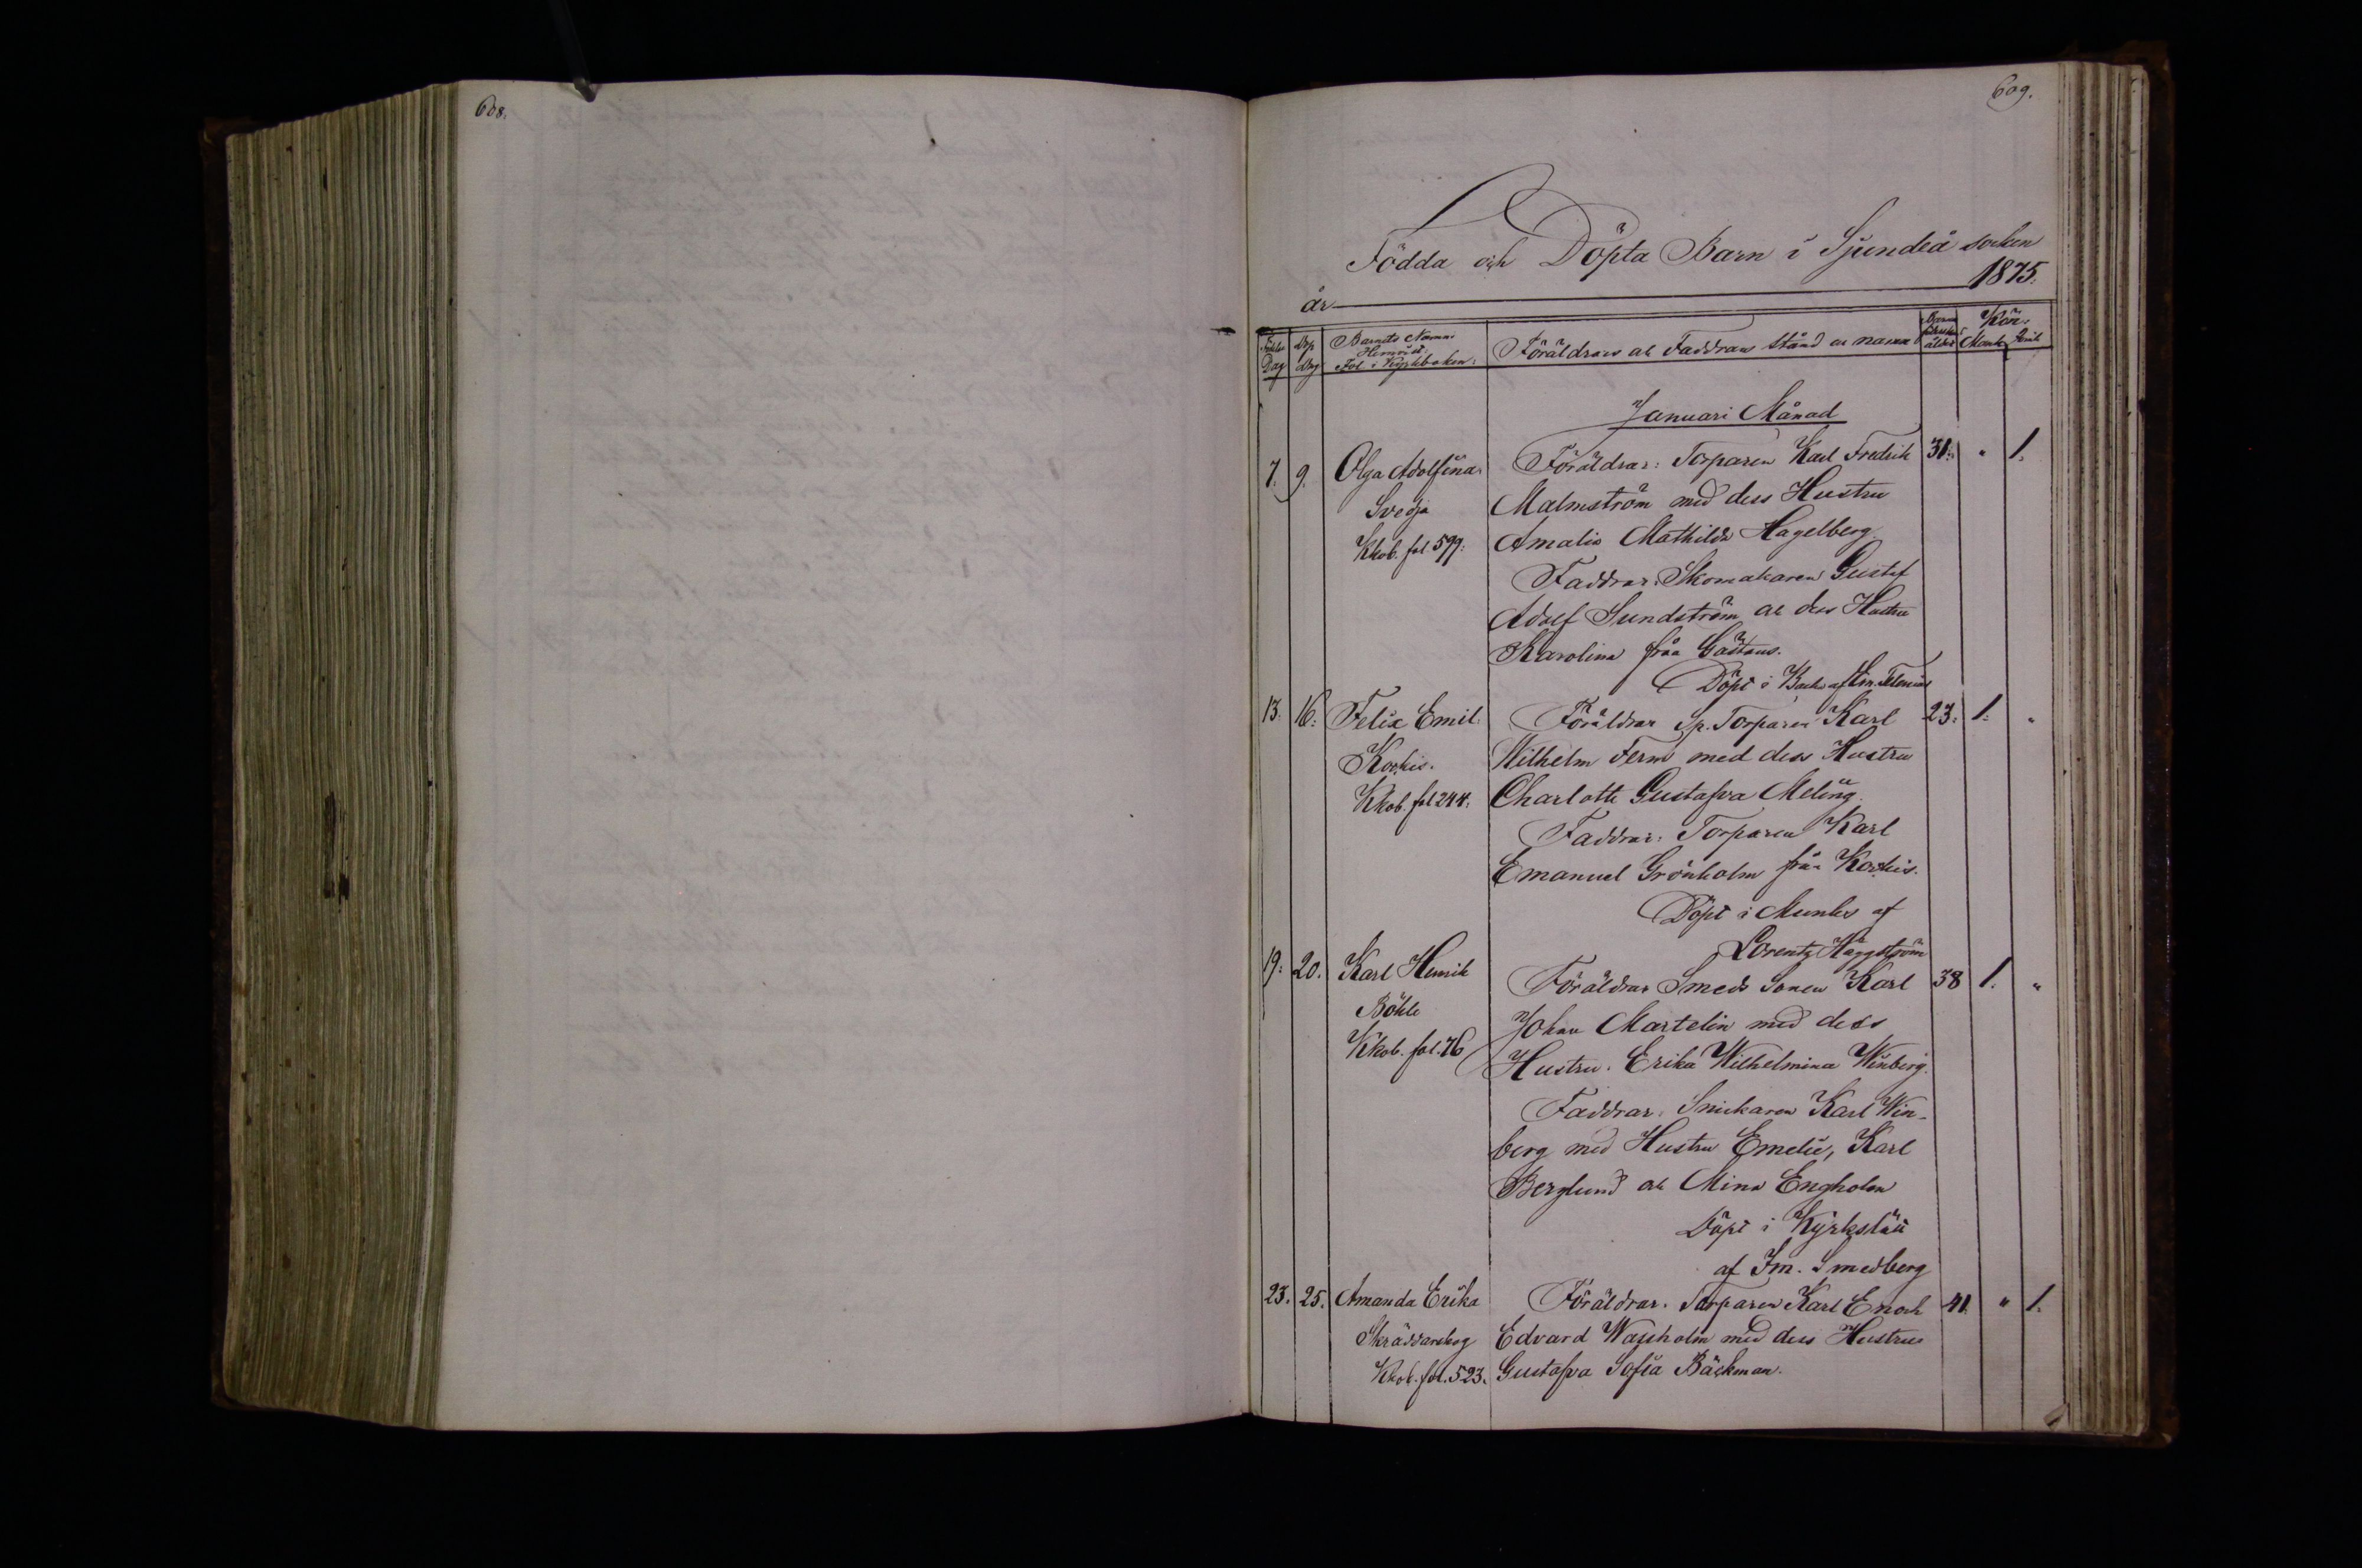 608.
609.
Födda och Döpta Barn i Sjundeå socken
år 1875.
Födelse Dag
Döp dag
Barnets Namn:
Hemvist:
Fol. i Kyrkboken:
Föräldrars ac Faddrars stånd ac namn
ålder
Kön.
Mank Qvink
Januari Månad
7. 9. Olga Adolfina Föräldrar: Torparen Karl Fredrik 31. " 1.
Svedja Malmström med dess Hustru
Kkob. fol. 599: Amalia Mathilda Hagelberg.
Faddrar: Skomakaren Gustaf
Adolf Sundström ac dess Hustru
Karolina från Gästans.
Döpt i af
13. 16. Felix Emil. Föräldrar Sp. Torparen Karl 23. 1. "
Korkis. Wilhelm Ferm med dess Hustru
Kkob. fol 244. Charlotte Gustafva Meling.
Faddrar: Torparen Karl
Emanuel Grönholm från Korkis.
Döpt i Munks af
Lorentz Häggström
19. 20. Karl Henrik Föräldrar Smeds Sonen Karl 38 1. "
Böhle Johan Martelin med dess
Kkob. fol. 76 Hustru. Erika Wilhelmina Winberg.
Faddrar. Snickaren Karl Win-
berg med Hustru Emelie, Karl
Berglund ac Mina Engholm
Döpt i Kyrkslätt
af Im. Smedberg
23. 25. Amanda Erika Föräldrar. Torparen Karl Enoch 41. " 1.
Skräddarskog Edvard Wassholm med dess Hustru
Kkob. fol. 523. Gustafva Sofia Bäckman.